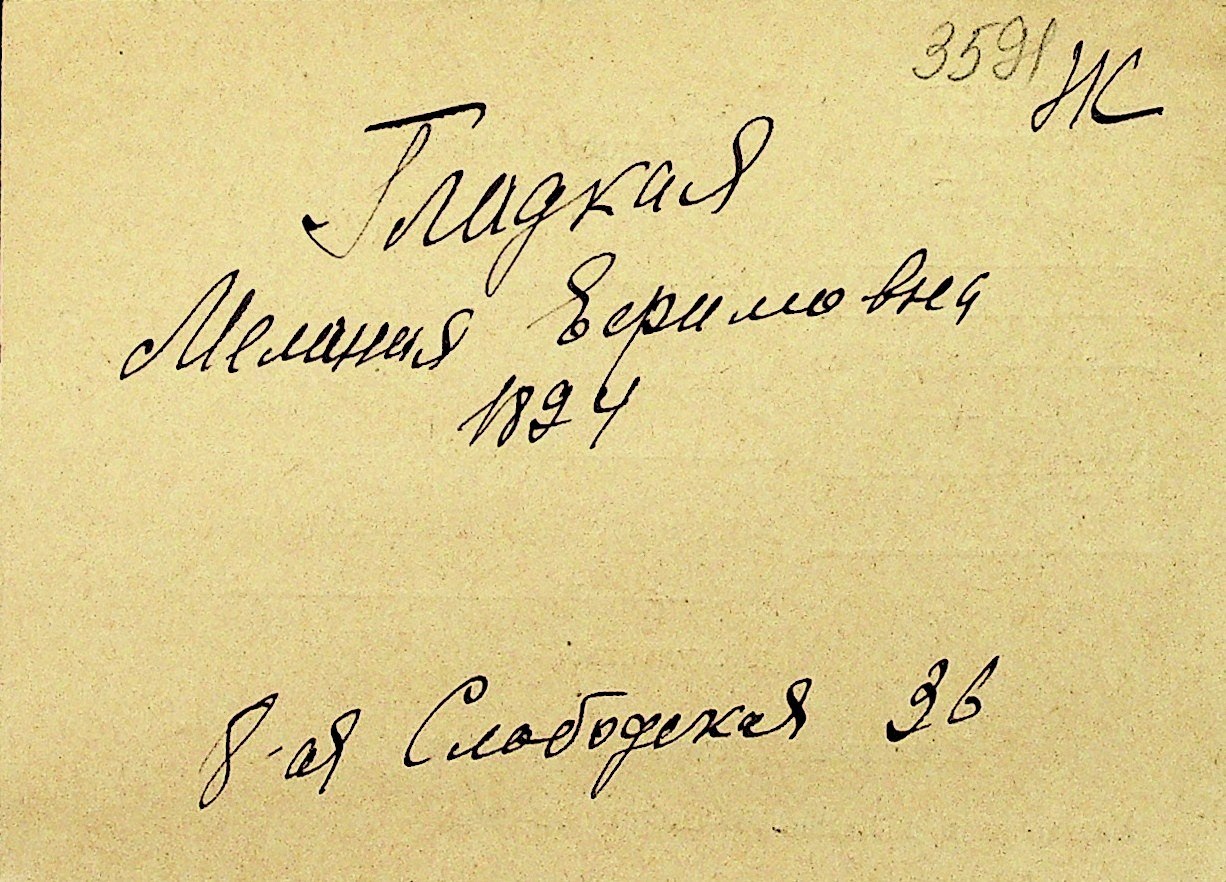 3591 Ж
Гладкая
Мелания Ефимовна
1894
8-ая Слободская 36